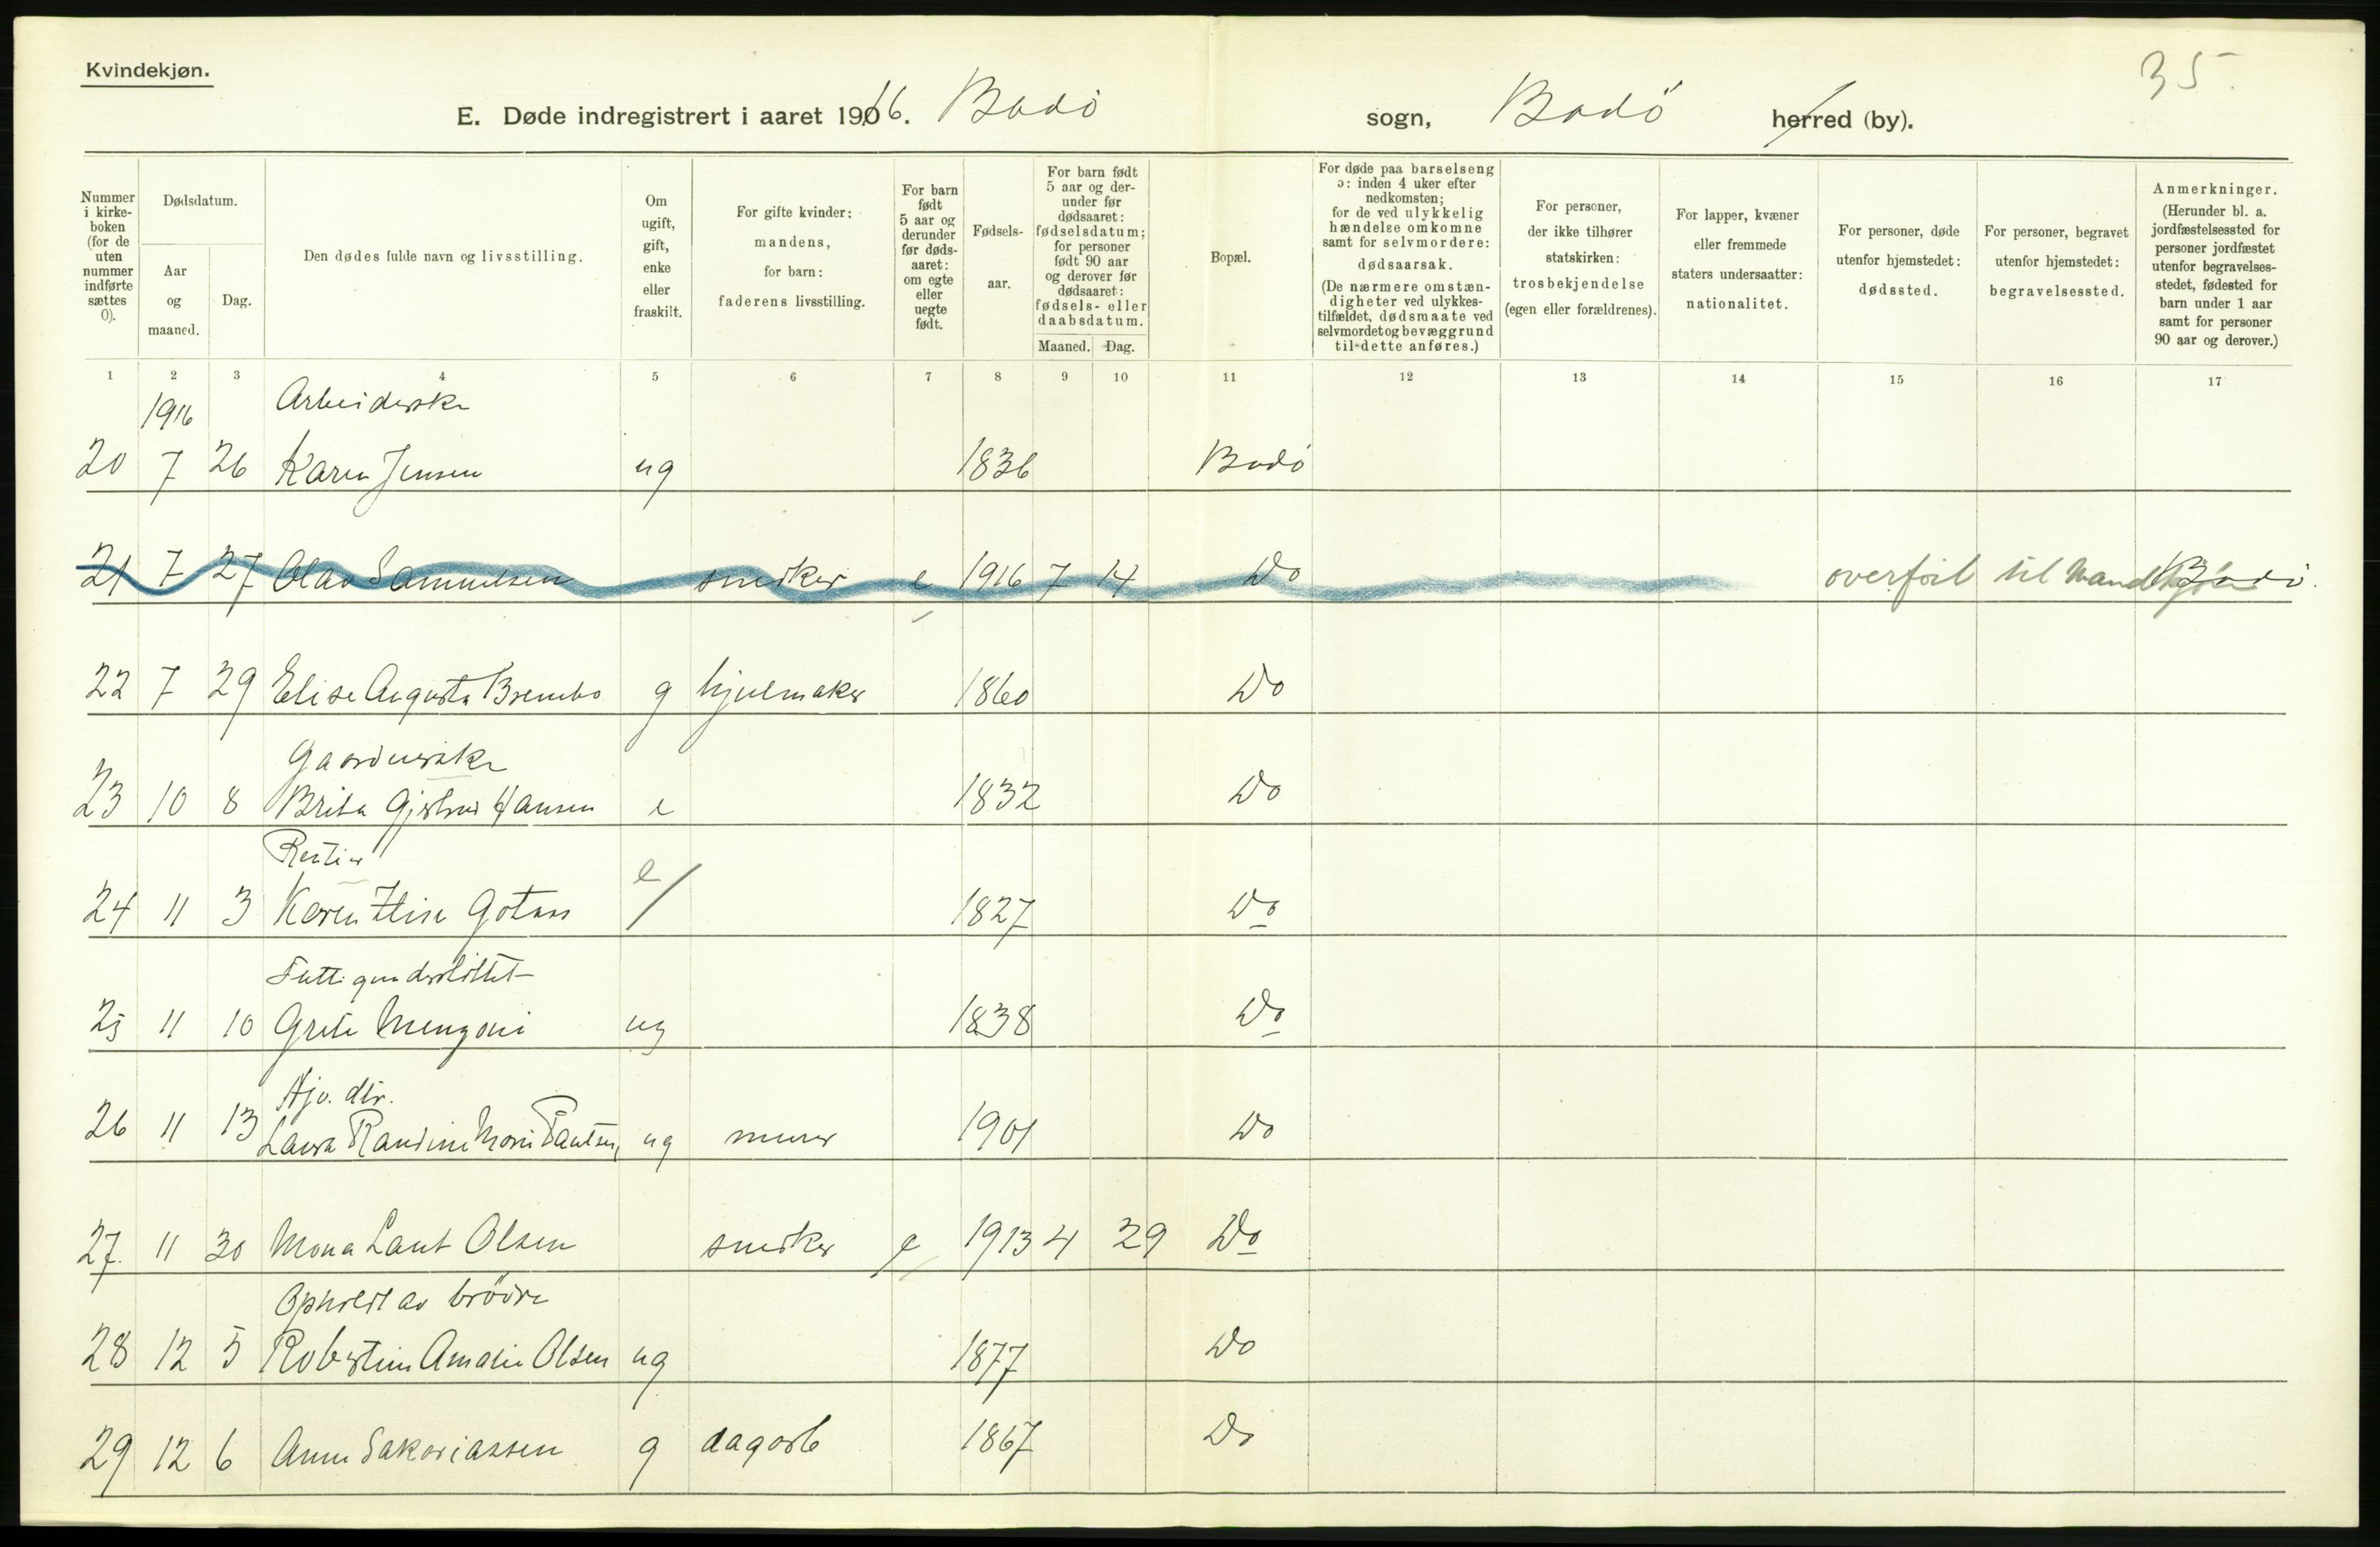 Kvindekjøn.
35.
E. Døde indregistrert i aaret 1916. Bodö sogn, Bodö herred (by).
Nummer i kirkeboken (for de uten nummer indførte sættes 0).
Dødsdatum.
Aar og maaned.
Dag.
Den dødes fulde navn og livsstilling.
Om ugift, gift, enke eller fraskilt.
For gifte kvinder: mandens, for barn: faderens livsstilling.
For barn født 5 aar og derunder før dødsaaret: om egte eller uegte født.
Fødselsaar.
For barn født 5 aar og derunder før dødsaaret: fødselsdatum; for personer født 90 aar og derover før dødsaaret: fødsels- eller daabsdatum.
Maaned. Dag.
Bopæl.
For døde paa barselseng ɔ: inden 4 uker efter nedkomsten; for de ved ulykkelig hændelse omkomne samt for selvmordere: dødsaarsak. (De nærmere omstændigheter ved ulykkestilfældet, dødsmaate ved selvmordet og bevæggrund til dette anføres.)
For personer, der ikke tilhører statskirken: trosbekjendelse (egen eller forældrenes).
For lapper, kvæner eller fremmede staters undersaatter: nationalitet.
For personer, døde utenfor hjemstedet: dødssted.
For personer, begravet utenfor hjemstedet: begravelsessted.
Anmerkninger. (Herunder bl. a. jordfæstelsessted for personer jordfæstet utenfor begravelsesstedet, fødested for barn under 1 aar samt for personer 90 aar og derover.)
1 2 3 4 5 6 7 8 9 10 11 12 13 14 15 16 17
1916 Arbeiderske
20 7 26 Karen Jensen ug 1836 Bodö
21 7 27 Olav Samuelsen snedker e 1916 7 14 Do overfört til Mandkjön Bodö.
22 7 29 Elise Augusta Brembo g hjulmaker 1860 Do
Gaardmerske
23 10 8 Brita Hansen e 1832 Do
Rentier e
24 11 3 Karen Elise Gotaas / 1827 Do
Fattigunderstöttet
25 11 10 Grete ug 1838 Do
Hjv. dtr.
26 11 13 Laura Randine Marie Paulsen ug murer 1901 Do
27. 11 30 Mona Laut Olsen snedker e 1913 4 29 Do
Opholdt av brödre
28 12 5 Robertine Amalie Olsen ug 1877 Do
29 12 6 Anne Sakariassen g dagarb 1867 Do